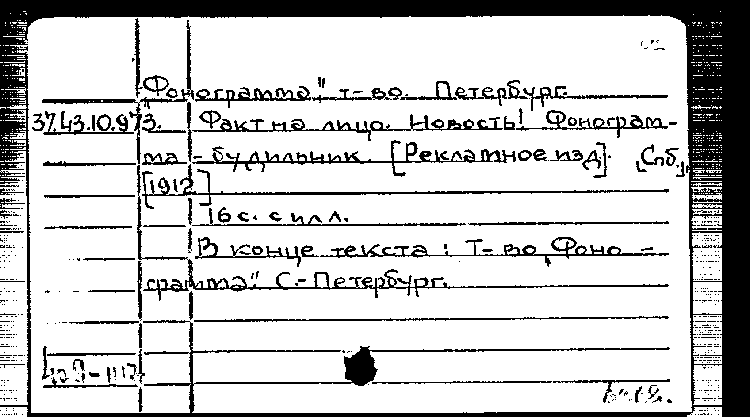 „Фонограмма" т-во. Петербург.
37.43.10.973. Факт на лицо. Новость! Фонограм-
ма - будильник. [Рекламное изд]. [Спб.],
[1912]
16 с. с илл.
В конце текста: Т-во „Фоно-
грамма". С.-Петербург.